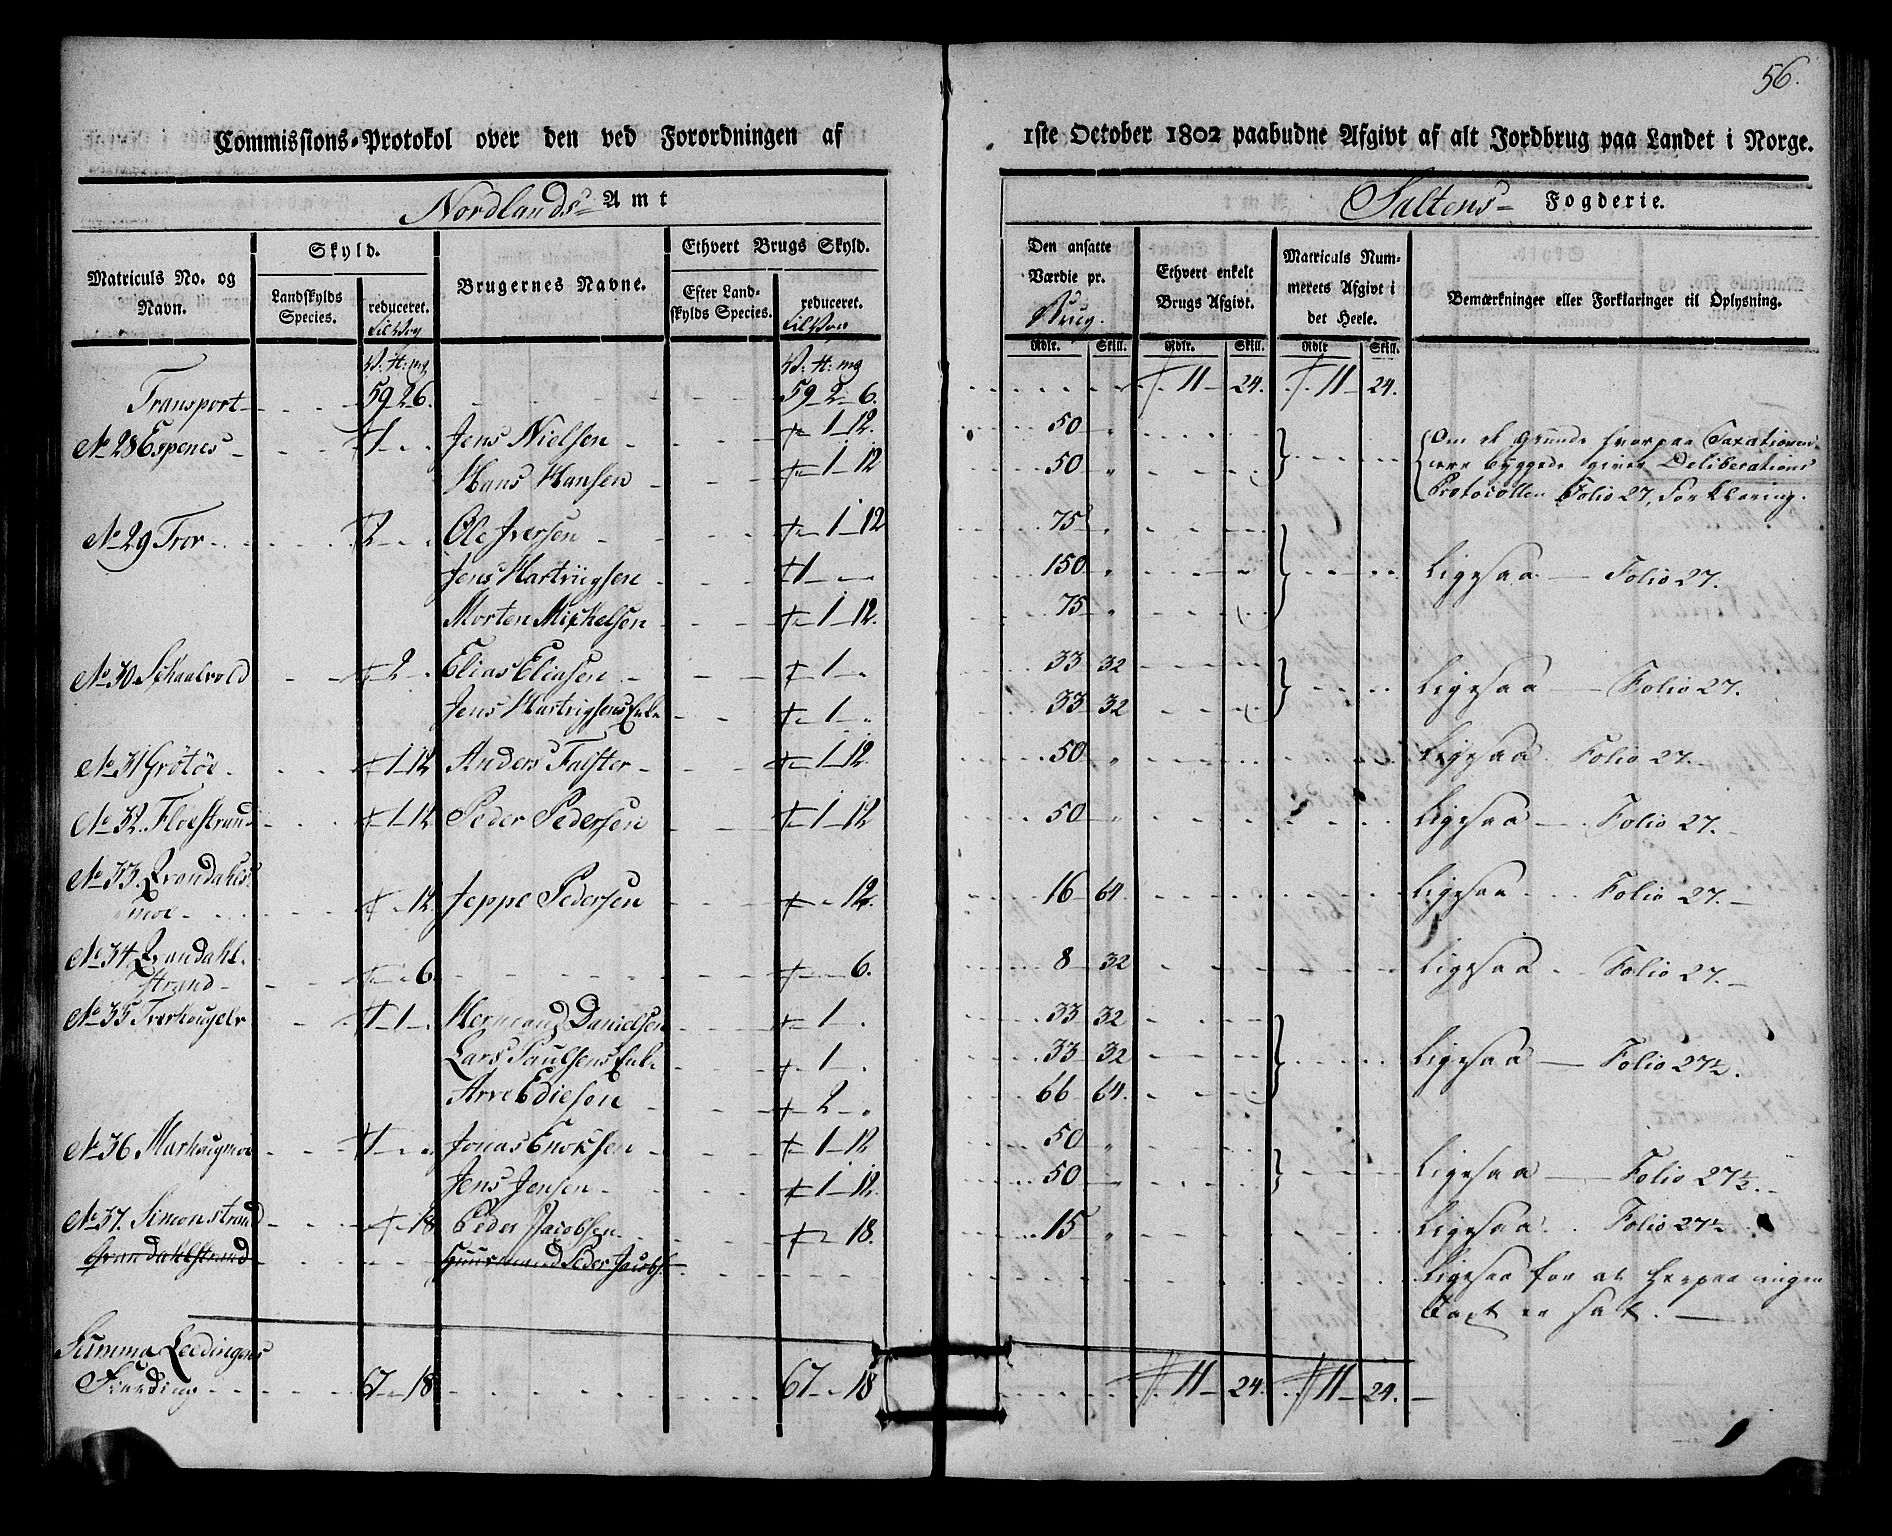 56.
Commissions-Protokol over den ved Forordningen af 1ste October 1802 paabudne Afgivt af alt Jordbrug paa Landet i Norge.
Nordlands Amt
Saltens Fogderie.
Matriculs No. og Navn.
Skyld.
Landskylds Species.
reduceret.
Brugernes Navne.
Ethvert Brugs Skyld.
Efter Landskylds Species.
reduceret.
Den ansatte Værdie pr.
Brug.
Ethvert enkelt Brugs Afgivt.
Matriculs Nummerets Afgivt i det Heele.
Bemærkninger eller Forklaringer til Oplysning.
Rdlr. Skill. Rdlr. Skill. Rdlr Skill.
V: H: mg V: H: mg
Transport 59 2 6. 59 2 6. 11 24. 11 24.
No 28 Espenes 1 Jens Nielsen 1 12. 50 Om de Grunde hvorpaa Taxationen
Hans Hansen 1 12 50 ere byggede giver Deliberations
Protocollen Folio 27, Forklaring.
No 29 Tror 2 Ole Iversen 1 12 75
Jens Hartvigsen 1 150 Ligesaa Folio 27.
Morten Mikkelsen 1 12. 75
No 30 Schaalvold 2 Elias Eliasen 1 33 32
Jens Hartvigsens Enke 1 33 32 Ligesaa Folio 27.
No 31 Grötöe 1 12 Anders Falster 1 12. 50 Ligesaa Folio 27.
No 32. Floestrand 1 12 Peder Pedersen 1 12 50 Ligesaa Folio 27.
No 33. Evendahls
moe 12 Jeppe Pedersen 12. 16 64. Ligesaa Folio 27.
No 34 Evendahl
strand 6. 6. 8 32 Ligesaa Folio 27.
No 35 1 Hermand Danielsen 1 33 32
Lars Paulsens Enke 1 33 32 Ligesaa Folio 27½.
Arve Ediesen 2 66 64.
No 36 Marhougmoe 1 Jonas Enoksen 1 12 50
Jens Jensen 1 12. 50 Ligesaa Folio 27½.
No 37. Simonstrand 18 Peder Jacobsen 18. 15 Ligesaa Folio 27½
Evendahlstrand Peder Jacobs. Ligesaa for at herpaa ingen
Taxt er sat.
Summa Leedingens
Fierding 67 18 67 18 11 24. 11 24.